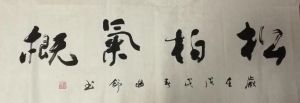 松柏氣概
歲在戊戌